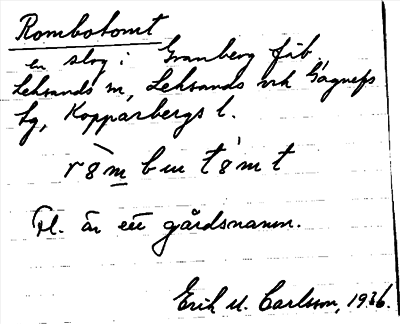 Rombotomt
en skog i Granberg fäb.
Leksands sn, Leksands och Gagnefs
tg, Kopparbergs l.
Fl. är ett gårdsnamn.
Erik M. Carlsson, 1936.